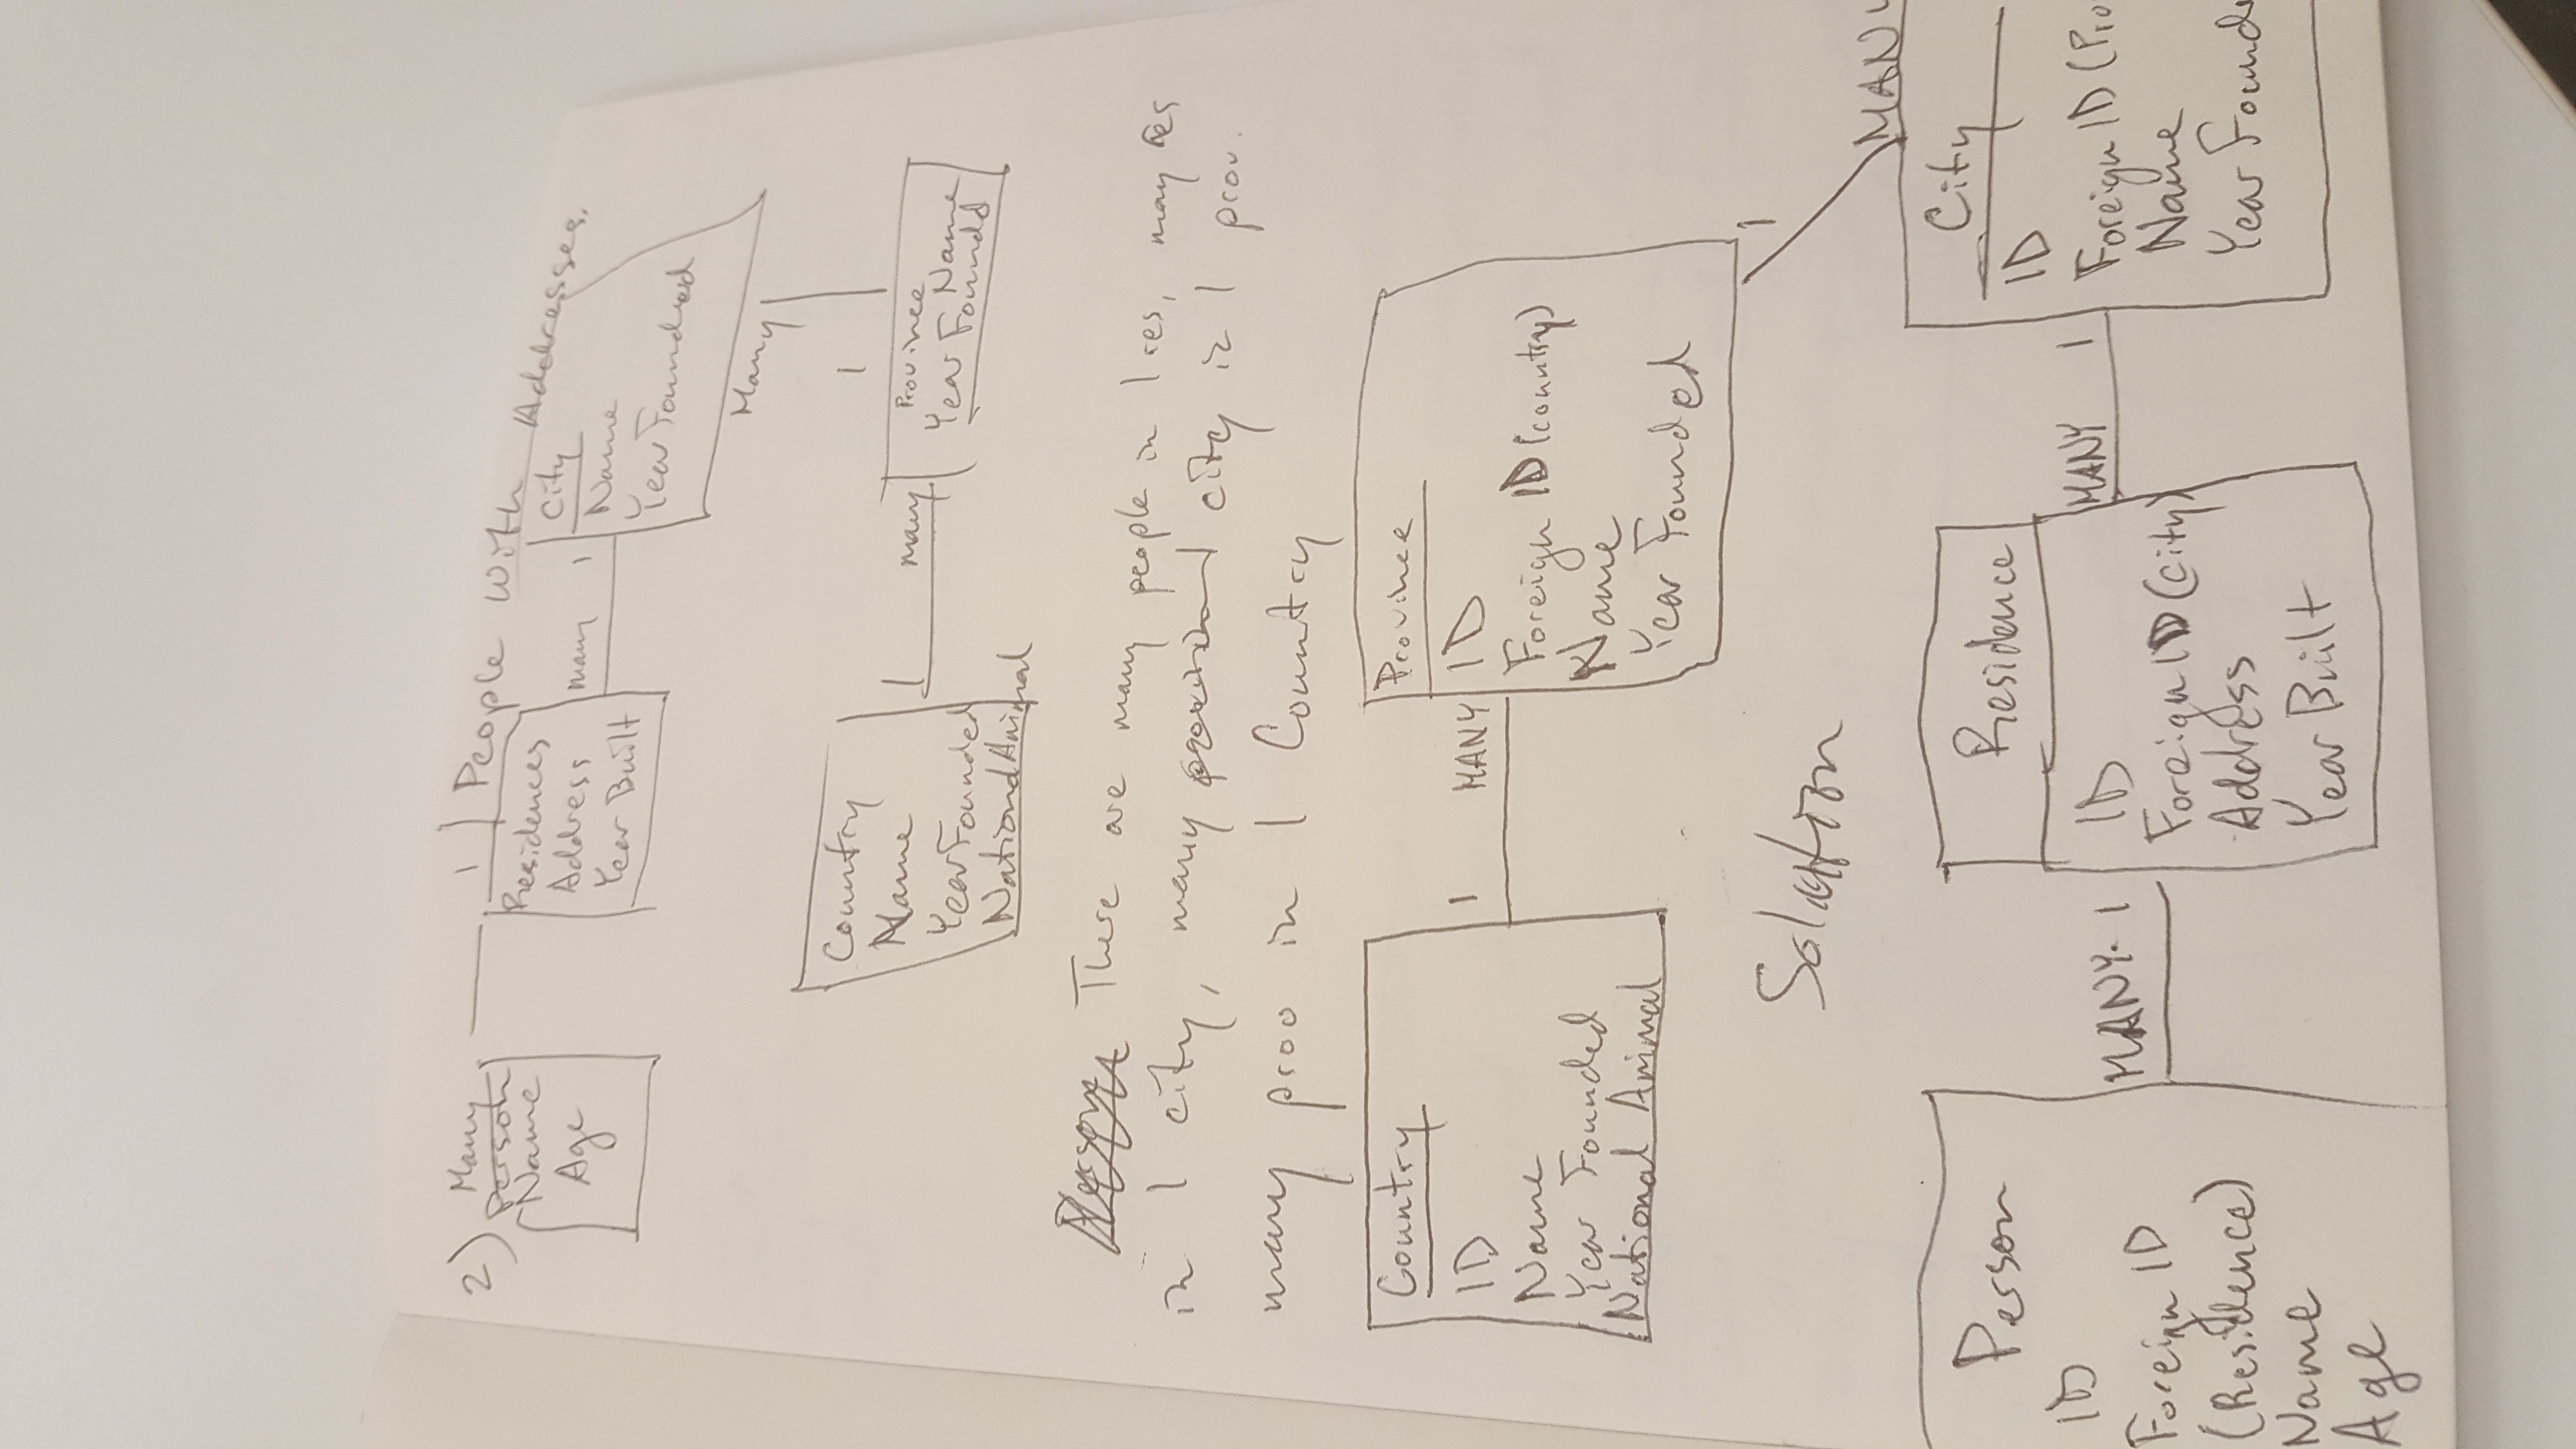 2) People With Addresses.
Many
Person
Name
Age
1
Residences
Address
Year Built
many 1
City
Name
Year Founded
Many
1
Country
Name
Year Founded
National Animal
1 many
Province
Name
Year Foundd
There are many people in 1 res, may res
in 1 city, many city in 1 prov.
many prov in 1 Country
Country
ID
Name
Year Founded
National Animal
1 MANY
Province
ID
Foreign ID (country)
Name
Year Founded
1
MANY
Solution
Person
ID
Foreign ID
(Residence)
Name
Age
MANY. 1
Residence
ID
Foreign ID (City)
Address
Year Built
MANY 1
City
ID
Foreign ID (Pro
Name
Year Founde